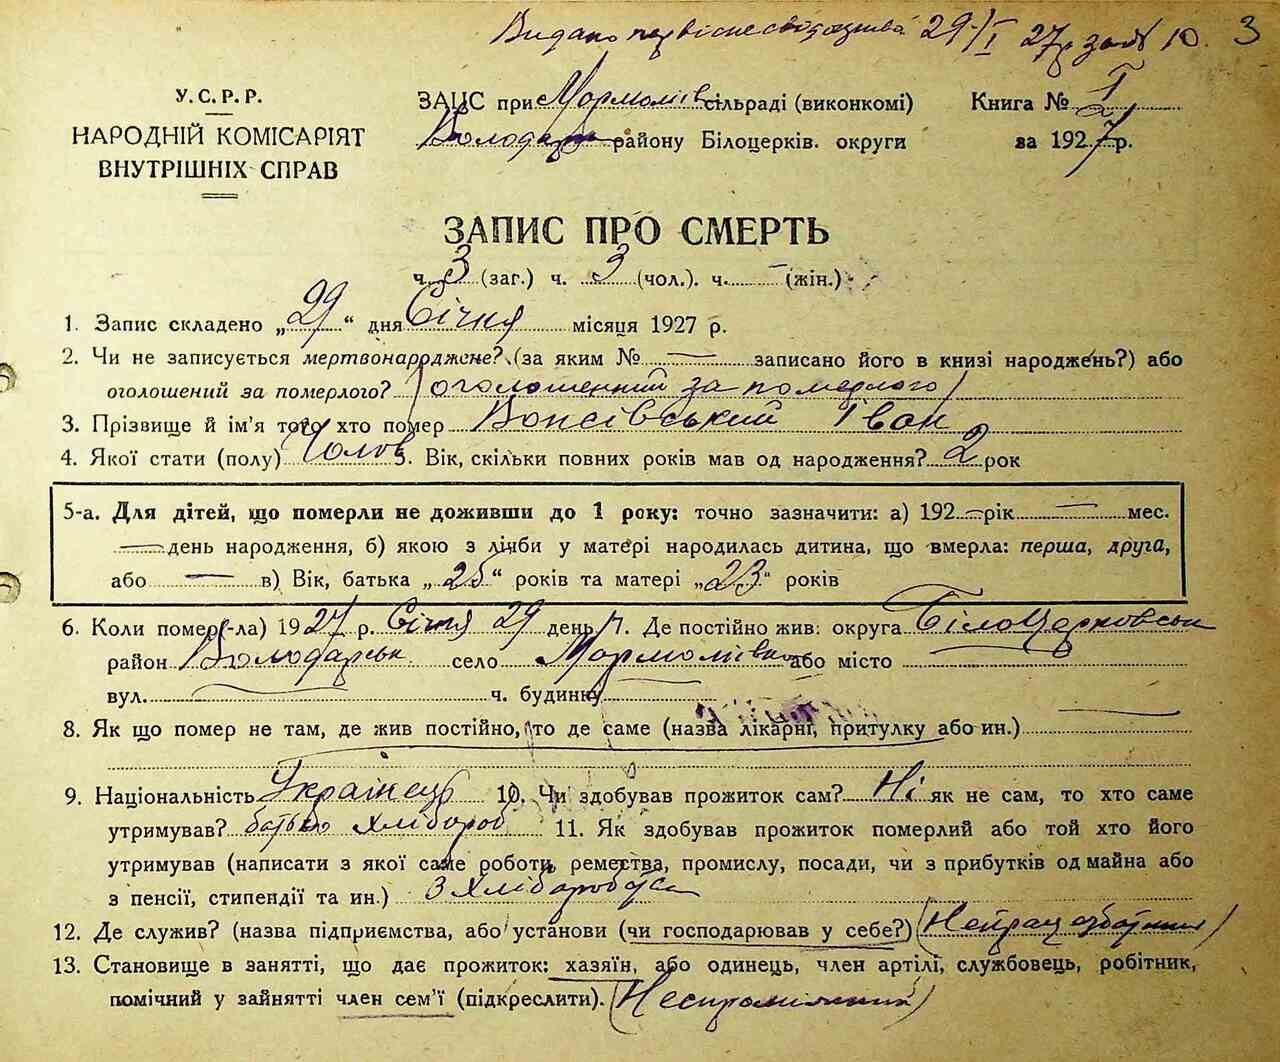 Видано первісне свідоцтво 29/I 27р за № 10. 3
У.С.Р.Р.
НАРОДНІЙ КОМІСАРІЯТ
ВНУТРІШНІХ СПРАВ
ЗАЦС при Мармолів сільраді (виконкомі)
Володар району Білоцерків. округи
Книга № I
за 1927 р.
ЗАПИС ПРО СМЕРТЬ
ч. 3 (заг.) ч. 3 (чол.). ч. — (жін.)
1. Запис складено „29“ дня Січня місяця 1927 р.
2. Чи не записується мертвонароджене? (за яким № — записано його в книзі народжень?) або
оголошений за померлого? (оголошений за померлого)
3. Прізвище й ім'я того хто помер Іван
4. Якої стати (полу) Чолов 5. Вік, скільки повних років мав од народження? 2 рок
5-а. Для дітей, що померли не доживши до 1 року: точно зазначити: а) 192 — рік — мес.
— день народження, б) якою з лічби у матері народилась дитина, що вмерла: перша, друга,
або — в) Вік, батька „25“ років та матері „23“ років
6. Коли помер(-ла) 1927 р. Січня 29 день 7. Де постійно жив: округа Білоцерковськ
район Володарськ село Мармоліівка або місто
вул. — ч. будинку —
8. Як що помер не там, де жив постійно, то де саме (назва лікарні, притулку або ин.) —
9. Національність Українець 10. Чи здобував прожиток сам? Ні як не сам, то хто саме
утримував? батько хлібороб 11. Як здобував прожиток померлий або той хто його
утримував (написати з якої саме роботи, ремества, промислу, посади, чи з прибутків од майна або
з пенсії, стипендії та ин.) З хліборобства
12. Де служив? (назва підприємства, або установи (чи господарював у себе?)
13. Становище в занятті, що дає прожиток: хазяїн, або одинець, член артілі, службовець, робітник,
помічний у зайнятті член сем'ї (підкреслити).